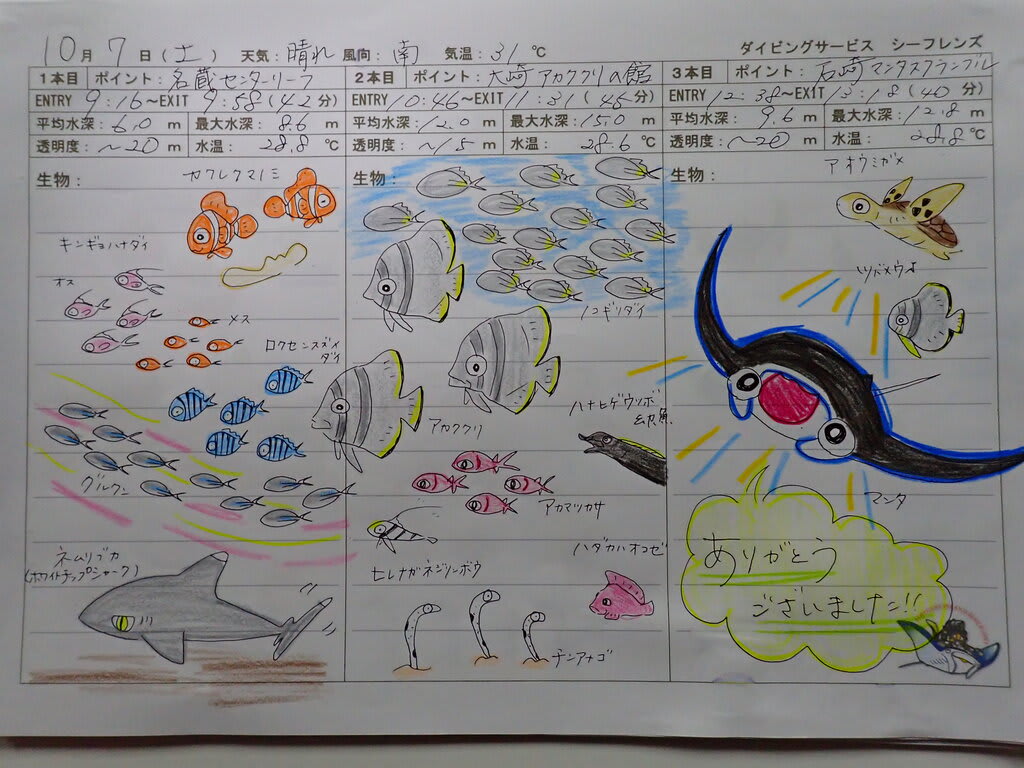 10月 7日(土) 天気:晴れ 風向:南 気温:31℃
ダイビングサービス シーフレンズ
1本目 ポイント:名蔵センターリーフ
ENTRY 9:16~EXIT 9:58(42分)
平均水深:6.0 m 最大水深:8.6 m
透明度:~20 m 水温:28.8 ℃
生物:
カクレクマノミ
キンギョハナダイ
オス
メス
ロクセンスズメ
ダイ
グルクン
ネムリブカ
(ホワイトチップシャーク)
2本目 ポイント:大崎アカククリの館
ENTRY 10:46~EXIT 11:31(45分)
平均水深:12.0 m 最大水深:15.0 m
透明度:~15 m 水温:28.6 ℃
生物:
ノコギリダイ
アカククリ
ハナヒゲウツボ
幼魚
アカマツカサ
ハダカハオコゼ
ヒレナガネジリンボウ
チンアナゴ
3本目 ポイント:石崎マンタスクランブル
ENTRY 12:38~EXIT 13:18(40分)
平均水深:9.6 m 最大水深:12.8 m
透明度:~20 m 水温:28.8 ℃
生物:
アオウミガメ
ツバメウオ
マンタ
ありがとう
ございました!!